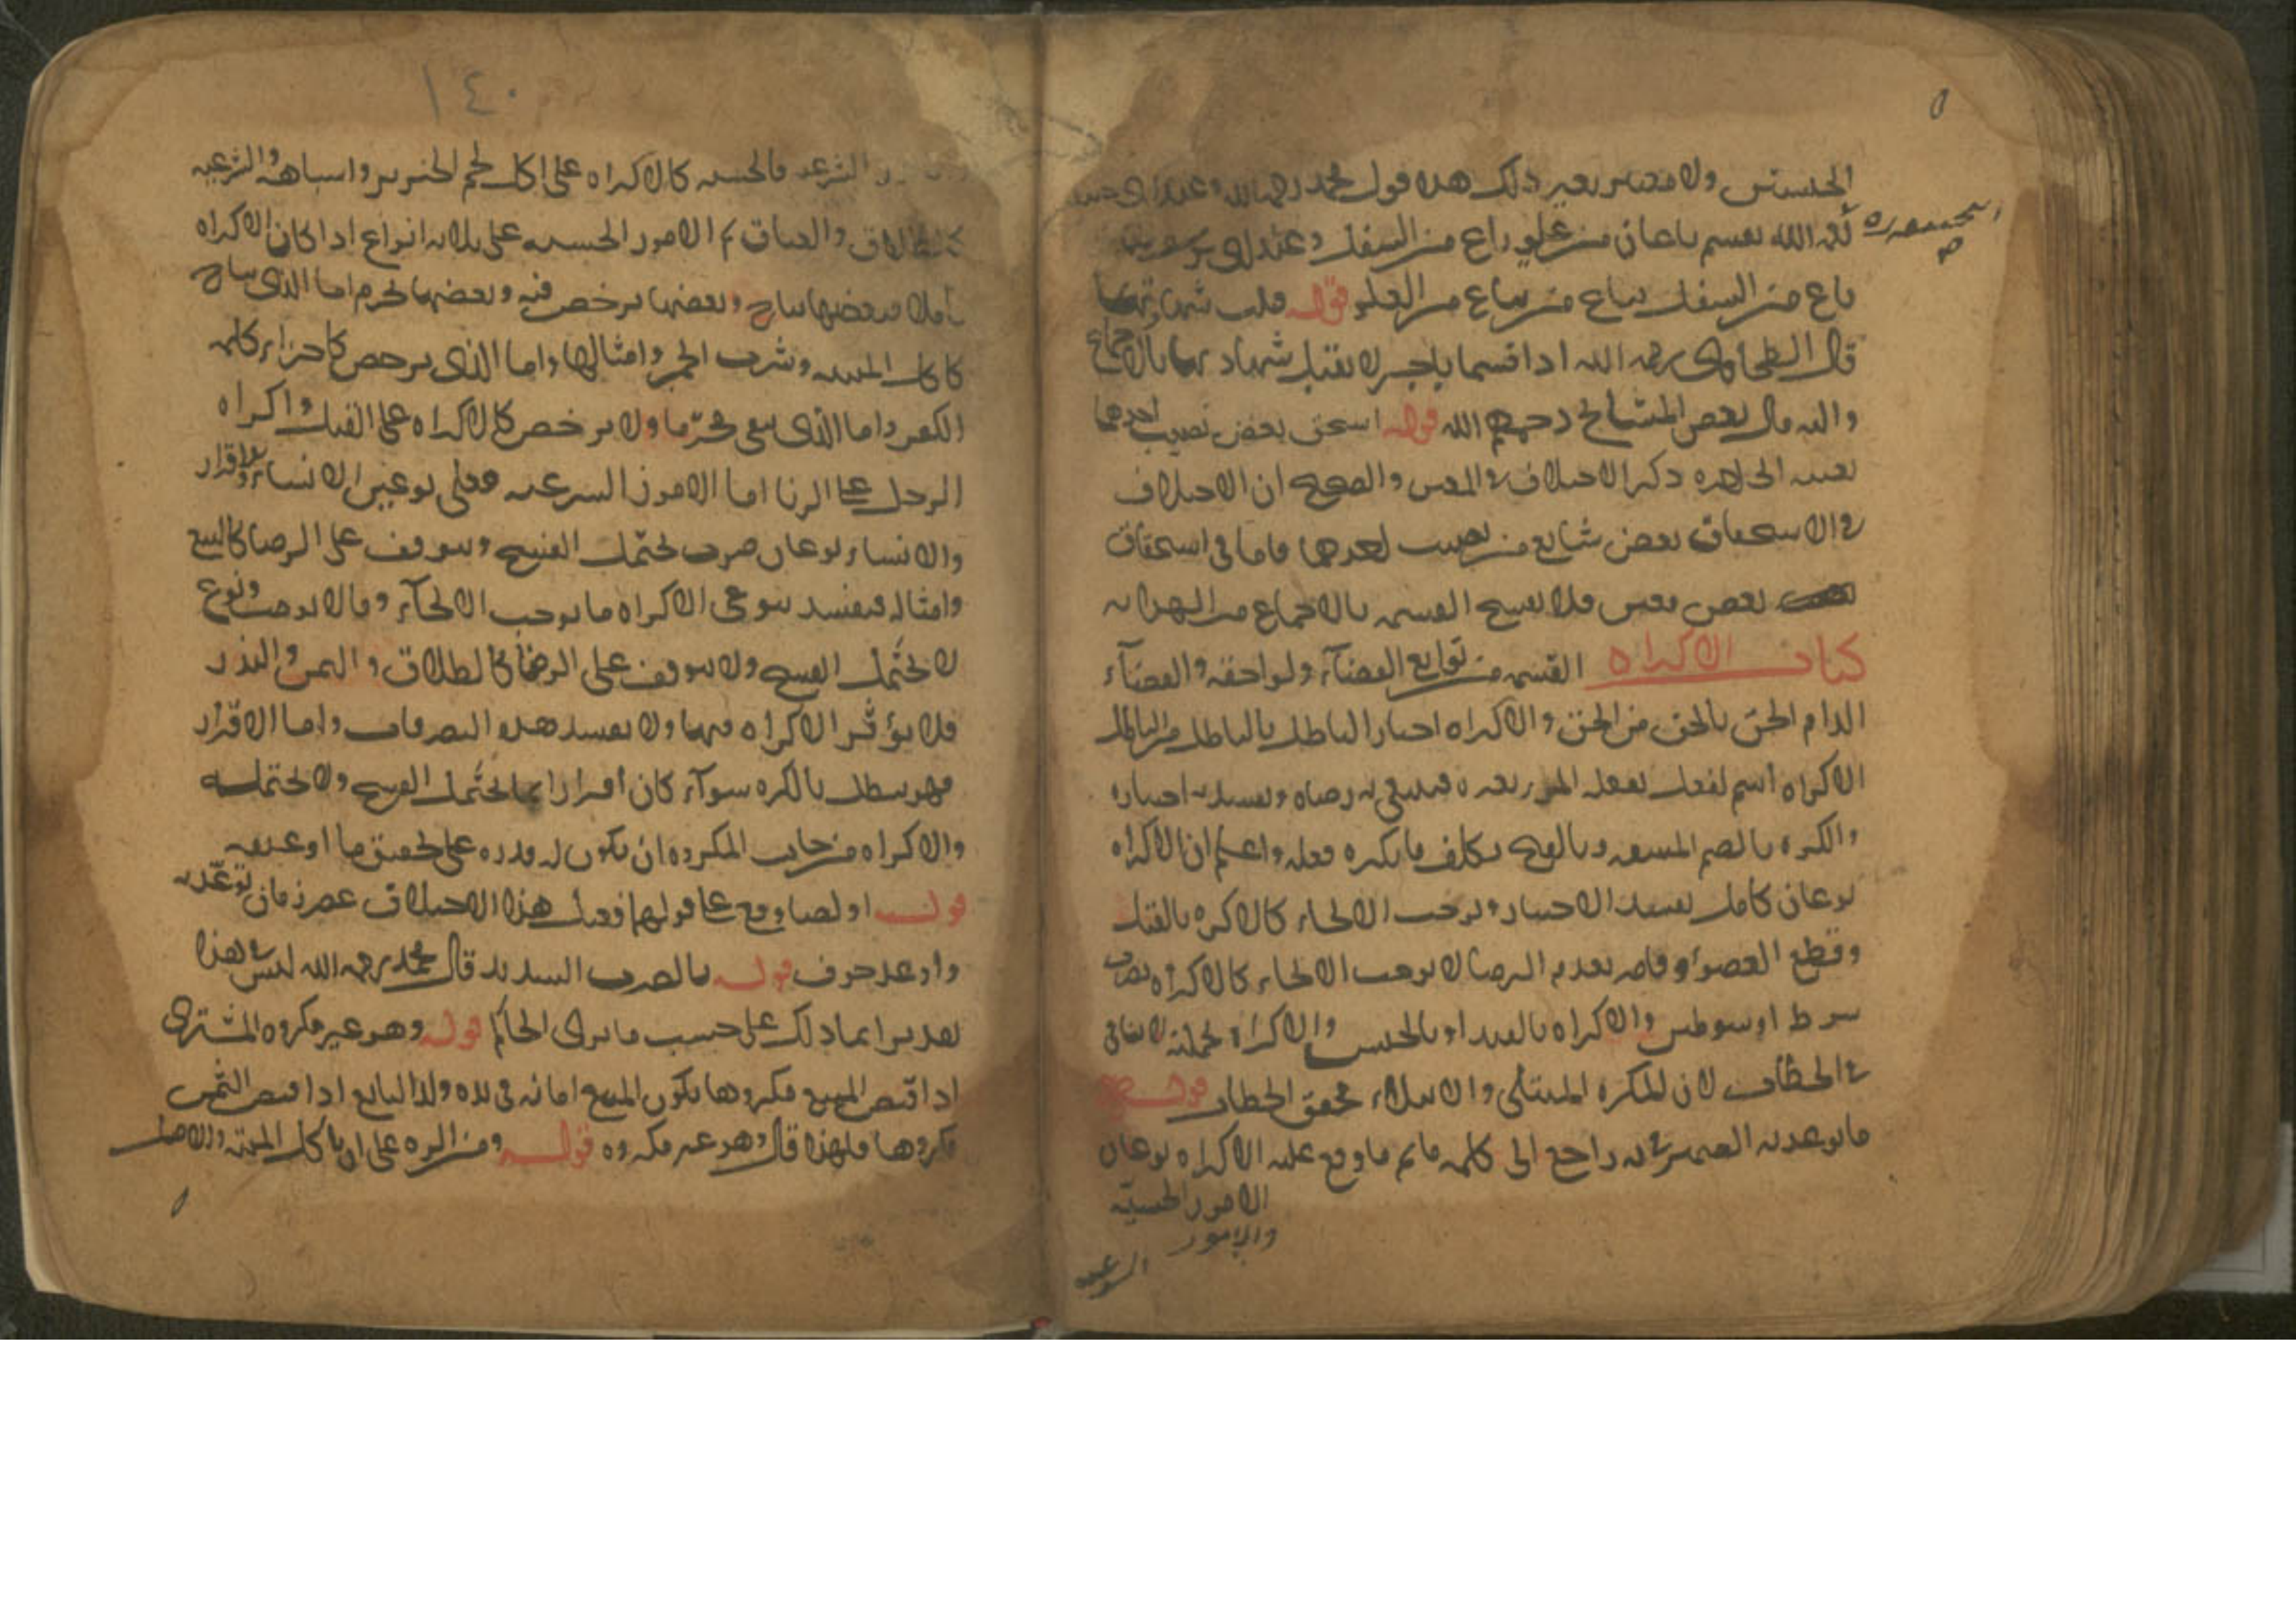 الجنسين ولا معتبر بغير ذلك هذه قول محمد رحمه الله وعند ابى حنيفه
رحمه الله يقسم ذراعان من علو بذراع من السفل وعند ابى يوسف
ذراع من السفل بذراع من العلو قوله قبلت شهادتهما
قال الطحاوى رحمه الله اذا قسما باجر لا يقبل شهادتهما بالاجماع
واليه مال بعض المشايخ رحمهم الله قوله استحق بعض نصيب احدهما
بعينه الى اخره ذكر الاختلاف فى المعين والصحيح ان الاختلاف
فى الاستحقاق بعض شايع من نصيب احدهما فاما فى استحقاق
بعض معين فلا يفسخ القسمه بالاجماع من الهدايه
كتاب الاكراه القسمه من توابع القضآء ولواحقه والقضآء
الزام الحق بالحق من المحق والاكراه اجبار الباطل بالباطل من المبطل
الاكراه اسم لفعل يفعله المرء بغيره فينتفى به رضاه ويفسد به اختياره
والكره بالضم المشقه وبالفتح تكلف ما يكره فعله واعلم ان الاكراه
نوعان كامل يفسد الاختيار ويوجب الالجاء كالاكره بالقتل
وقطع العضو وقاصر يعدم الرضا لا يوجب الالجاء كالاكراه بضرب
سوط او سوطين والاكراه بالقيد او بالحبس والاكراه بجملته لا ينافى
الخطاب لان المكره المبتلى والابتلاء يحقق الخطاب قوله
ما توعد به الضمير فى به راجع الى كلمه ما ثم ما وقع عليه الاكراه نوعان
الامور الحسيه
والامور
الشرعيه
١٤٠
الشرعيه فالحسيه كالاكراه على اكل لحم الخنزير واشباهه والشرعيه
كالطلاق والعتاق ثم الامور الحسيه على ثلاثه انواع اذا كان الاكراه
كاملا فبعضها يباح وبعضها يرخص فيه وبعضها يحرم اما الذى يباح
كاكل الميته وشرب الخمر وامثالها واما الذى يرخص كاجراء كلمه
الكفر واما الذى يبقى محرّما ولا يرخص كالاكراه على القتل واكراه
الرجل على الزنا اما الامور الشرعيه فعلى نوعين انشاء واقرار
والانشاء نوعان ضرب يحتمل الفسخ ويتوقف على الرضا كالبيع
وامثاله فيفسد بنوعى الاكراه ما يوجب الالجآء وما لا يوجب ونوع
لا يحتمل الفسخ ولا يتوقف على الرضا كالطلاق واليمين والنذر
فلا يؤثر الاكراه فيها ولا يفسد هذه التصرفات واما الاقرار
فهو يبطل بالكره سوآء كان اقرارا بما يحتمل الفسخ ولا يحتمله
والاكراه من جانب المكروه ان يكون له قدره على تحقيق ما اوعد به
قوله او لصا وقع على قولهما فعل هذا الاختلاف عصر زمان توعّد به
واوعد خوف قوله بالضرب الشديد قال محمد رحمه الله ليس فى هذا
تقدير انما ذلك على حسب ما يرى الحاكم قوله وهو غير مكروه المشترى
اذا قبض المبيع مكروها يكون المبيع امانه فى يده ولذا البايع اذا قبض الثمن
مكروها فلهذا قال وهو غير مكروه قوله ومن اكره على ان ياكل الميته والاصل